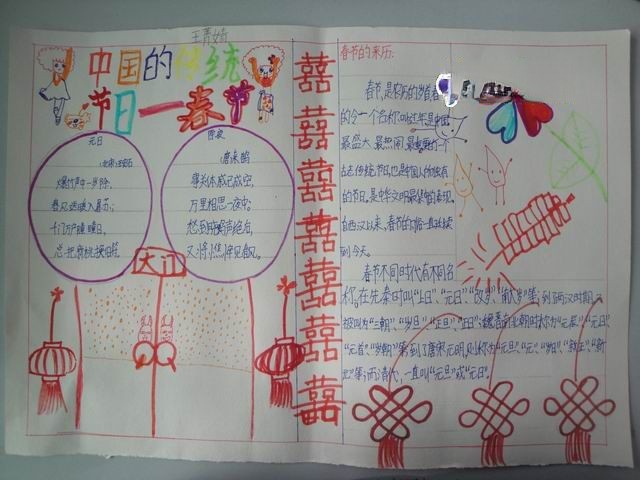 王青婷
中国的传统
节日一春节
元日
(北宋)王安石
爆竹声中一岁除,
春风送暖入屠苏;
千门万户曈曈日,
总把新桃换旧符。
除夜
唐来鹄
事关休戚已成空,
万里相思一夜中;
愁到晓鸡声绝后,
又将憔悴见春风。
大门
囍
囍
囍
囍
囍
囍
囍
春节的来历:
春节,是农历的岁首,春
的另一个名称,叫过年,是中国
最盛大、最热闹、最重要的一个
古老传统节日,也是中国人所独有
的节日,是中华文明最集中的表现。
自西汉以来,春节的习俗一直延续
到今天。
春节不同时代有不同名
称。在先秦时叫“上日”、“元日”、“改岁”、“献岁”等;到了两汉时期,又
被叫为“三朝”、“岁旦”、“正旦”、“正日”;魏晋南北朝时称为“元辰”、“元日”、
“元首”、“岁朝”等;到了唐宋元明,则称为“元旦”、“元”、“岁日”、“新正”、“新
元”等;而清代,一直叫“元旦”或“元日”。